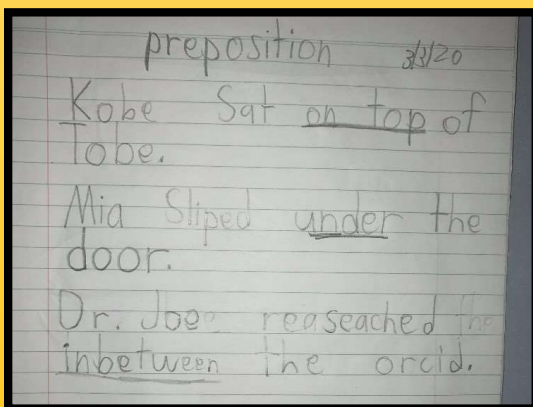 preposition 3/3/20
Kobe Sat on top of
Tobe.
Mia Sliped under the
door.
Dr. Joe reaseached the
inbetween the orcid.